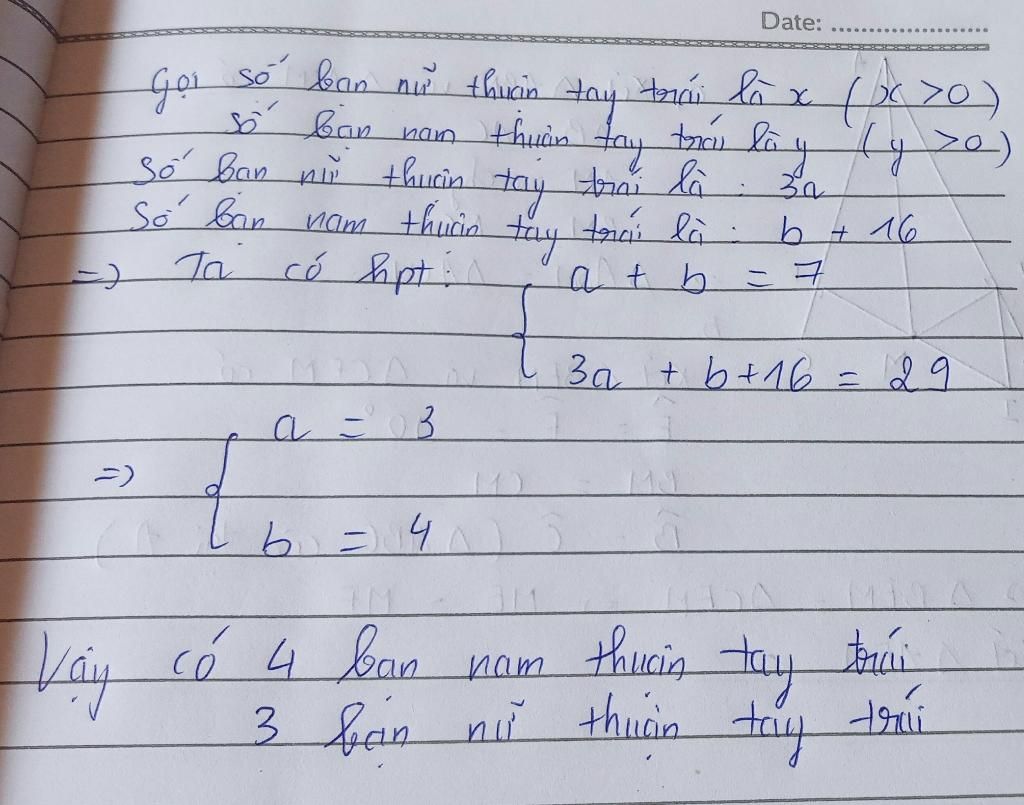 Date: ........................
Gọi số bạn nữ thuận tay trái là x (x > 0)
số bạn nam thuận tay trái là y (y > 0)
Số bạn nữ thuận tay trái là : 3a
Số bạn nam thuận tay trái là : b + 16
=> Ta có hpt :
{ a + b = 7
3a + b + 16 = 29
=> { a = 3
b = 4
Vậy có 4 bạn nam thuận tay trái
3 bạn nữ thuận tay trái